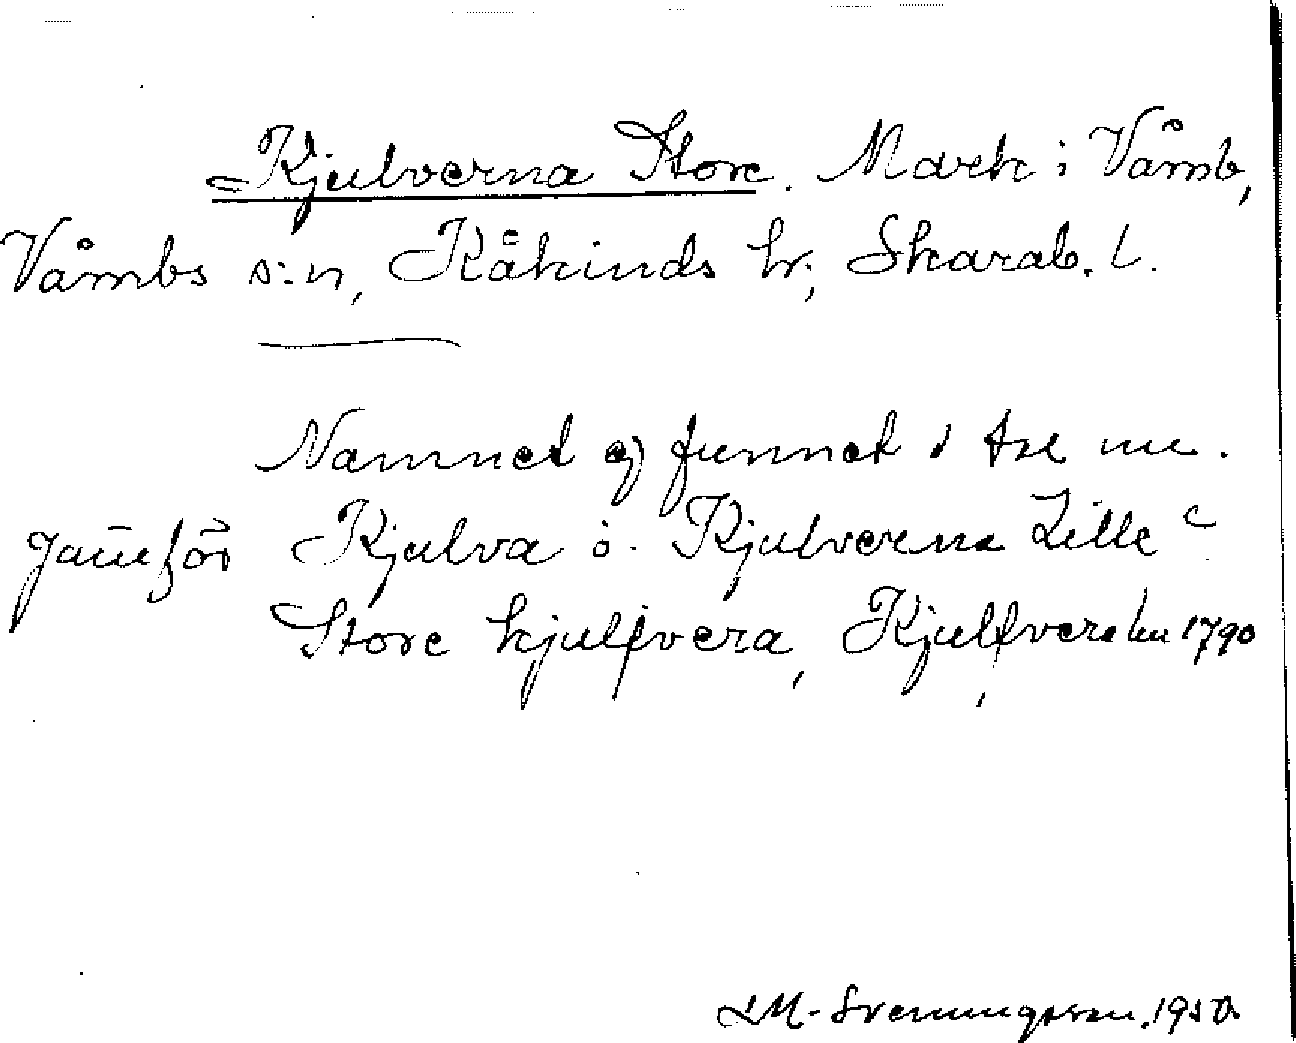 Kjulverna Store. Mark i Våmb,
Våmbs s:n, Kåkinds hr, Skarab. l.
Namnet ej funnet i tre
Jämför Kjulva o. Kjulverna Lille
Store kjulfvera, Kjulfvera 1790
Svenungsson, 1950